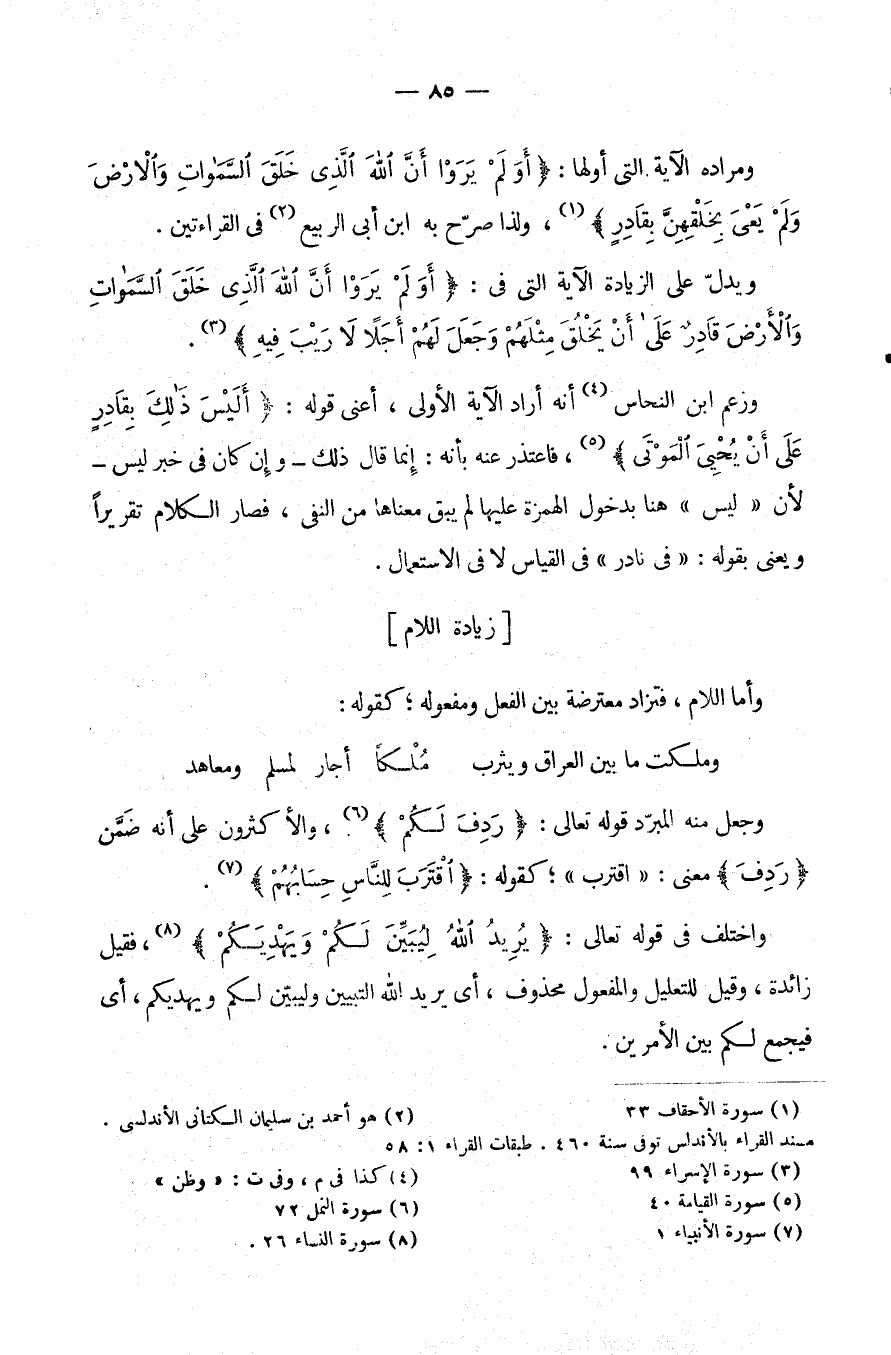 — ٨٥ —
ومراده الآية التى أولها : ﴿ أَوَلَمْ يَرَوْا أَنَّ ٱللهَ ٱلَّذِى خَلَقَ ٱلسَّمٰوَاتِ وَٱلْأَرْضَ
وَلَمْ يَعْىَ بِخَلْقِهِنَّ بِقَادِرٍ ﴾ (١) ، ولذا صرّح به ابن أبى الربيع (٢) فى القراءتين .
ويدلّ على الزيادة الآية التى فى : ﴿ أَوَلَمْ يَرَوْا أَنَّ ٱللهَ ٱلَّذِى خَلَقَ ٱلسَّمٰوَاتِ
وَٱلْأَرْضَ قَادِرٌ عَلَىٰ أَنْ يَخْلُقَ مِثْلَهُمْ وَجَعَلَ لَهُمْ أَجَلًا لَا رَيْبَ فِيهِ ﴾ (٣) .
وزعم ابن النحاس (٤) أنه أراد الآية الأولى ، أعنى قوله : ﴿ أَلَيْسَ ذَٰلِكَ بِقَادِرٍ
عَلَى أَنْ يُحْيِىَ ٱلْمَوْتَى ﴾ (٥) ، فاعتذر عنه بأنه : إنما قال ذلك – وإن كان فى خبر ليس –
لأن « ليس » هنا بدخول الهمزة عليها لم يبق معناها من النفى ، فصار الكلام تقريراً
ويعنى بقوله : « فى نادر » فى القياس لا فى الاستعمال .
[ زيادة اللام ]
وأما اللام ، فتزاد معترضة بين الفعل ومفعوله ؛ كقوله :
وملكت ما بين العراق ويثرب مُلْكاً أجار لمسلم ومعاهد
وجعل منه المبرّد قوله تعالى : ﴿ رَدِفَ لَكُمْ ﴾ (٦) ، والأكثرون على أنه ضَمَّن
﴿ رَدِفَ ﴾ معنى : « اقترب » ؛ كقوله : ﴿ ٱقْتَرَبَ لِلنَّاسِ حِسَابُهُمْ ﴾ (٧) .
واختلف فى قوله تعالى : ﴿ يُرِيدُ ٱللهُ لِيُبَيِّنَ لَكُمْ وَيَهْدِيَكُمْ ﴾ (٨) ، فقيل
زائدة ، وقيل للتعليل والمفعول محذوف ، أى يريد الله التبيين وليبيّن لكم ويهديكم ، أى
فيجمع لكم بين الأمرين .
(١) سورة الأحقاف ٣٣ (٢) هو أحمد بن سليمان الكنانى الأندلسى .
مسند القراء بالأندلس توفى سنة ٤٦٠ . طبقات القراء ١ : ٥٨
(٣) سورة الإسراء ٩٩ (٤) كذا فى م ، وفى ت : « وظن »
(٥) سورة القيامة ٤٠ (٦) سورة النمل ٧٢
(٧) سورة الأنبياء ١ (٨) سورة النساء ٢٦ .